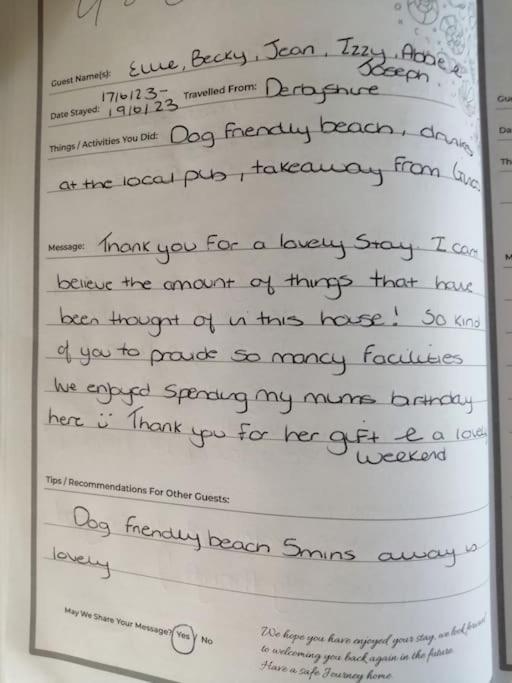 Guest Name(s): Ellie, Becky, Jean, Izzy, Abbe &
Joseph
Date Stayed: 17/6/23- 19/6/23 Travelled From: Derbyshire
Things / Activities You Did: Dog friendly beach, drinks
at the local pub, takeaway from
Message: Thank you for a lovely stay. I can
believe the amount of things that have
been thought of in this house! So kind
of you to provide so many facilities
We enjoyed spending my mums birthday
here :) Thank you for her gift & a lovely
weekend
Tips / Recommendations For Other Guests:
Dog friendly beach 5mins away is
lovely
May We Share Your Message? Yes / No
We hope you have enjoyed your stay, we look forward
to welcoming you back again in the future.
Have a safe Journey home